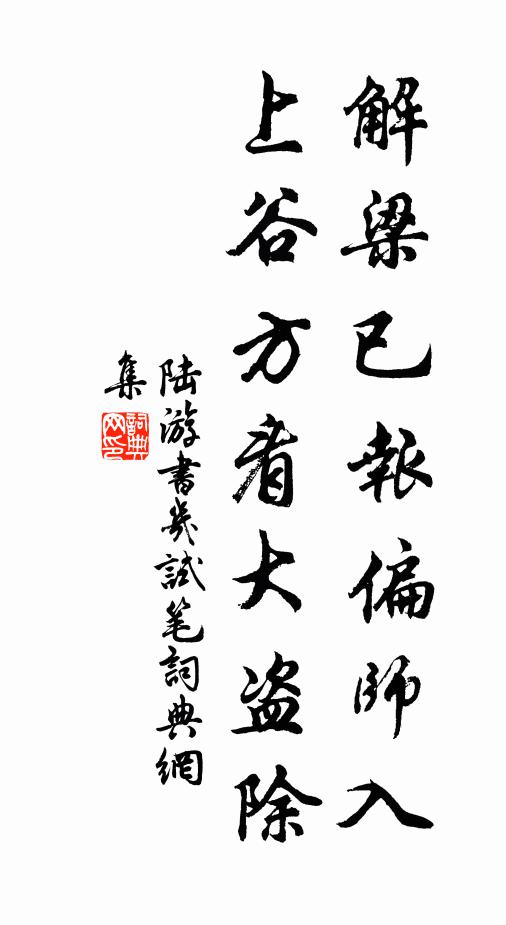 解梁已報偏師入
上谷方看大盜除
陸游書幾試笔詞典網
集
詞典
网印